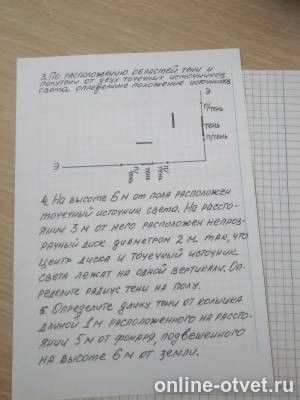 3. По расположению областей тени и
полутени от двух точечных источников
света определите положение источников.
Э
п/тень
тень
п/тень
Э
п/тень
тень
п/тень
4. На высоте 6 м от пола расположен
точечный источник света. На рассто-
янии 3 м от него расположен непроз-
рачный диск диаметром 2 м так, что
центр диска и точечный источник
света лежат на одной вертикали. Оп-
ределите радиус тени на полу.
5. Определите длину тени от колышка
длиной 1 м расположенного на рассто-
янии 5 м от фонаря, подвешенного
на высоте 6 м от земли.
online-otvet.ru